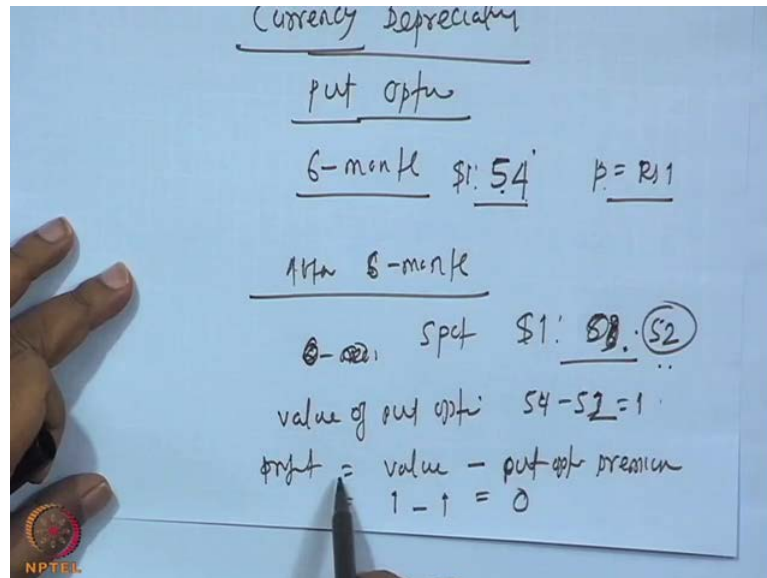 Currency Depreciation
put option
6-month $1: 54 p = Rs 1
After 6-month
Spot $1: 52
value of put option 54-52=1
profit = value - put option premium
= 1 - 1 = 0
NPTEL